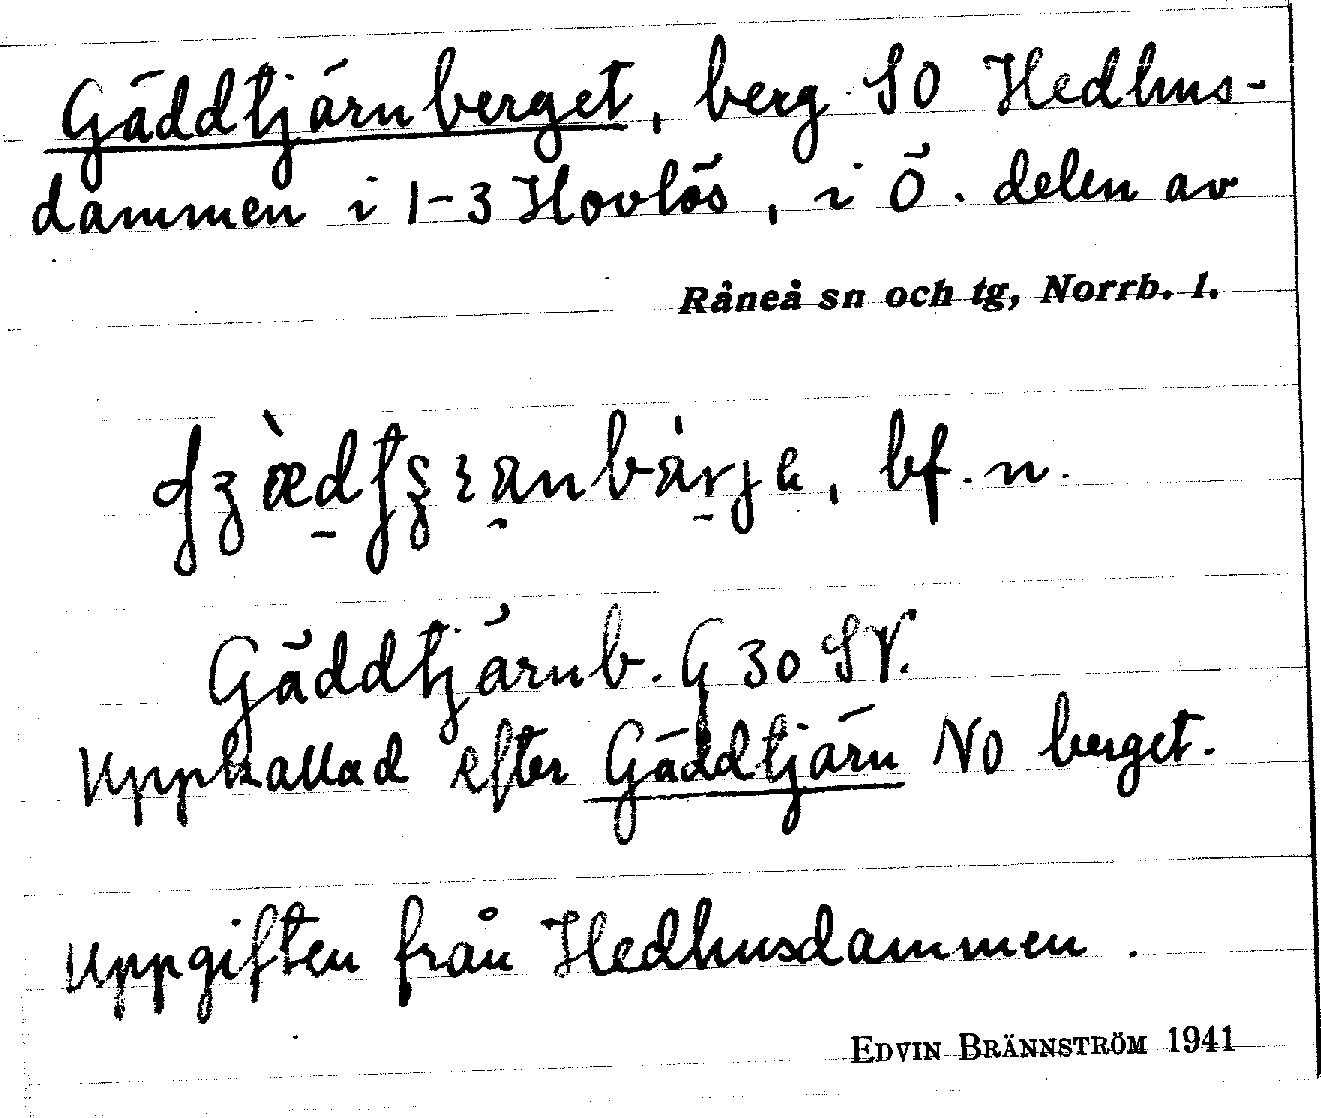 Gäddtjärnberget, berg SO Hedhus-
dammen i 1-3 Hovlös, i Ö. delen av
Råneå sn och tg, Norrb. l.
bf. n.
Gäddtjärnb. G 30 SV.
Uppkallad efter Gäddtjärn NO berget.
Uppgiften från Hedhusdammen.
EDVIN BRÄNNSTRÖM 1941